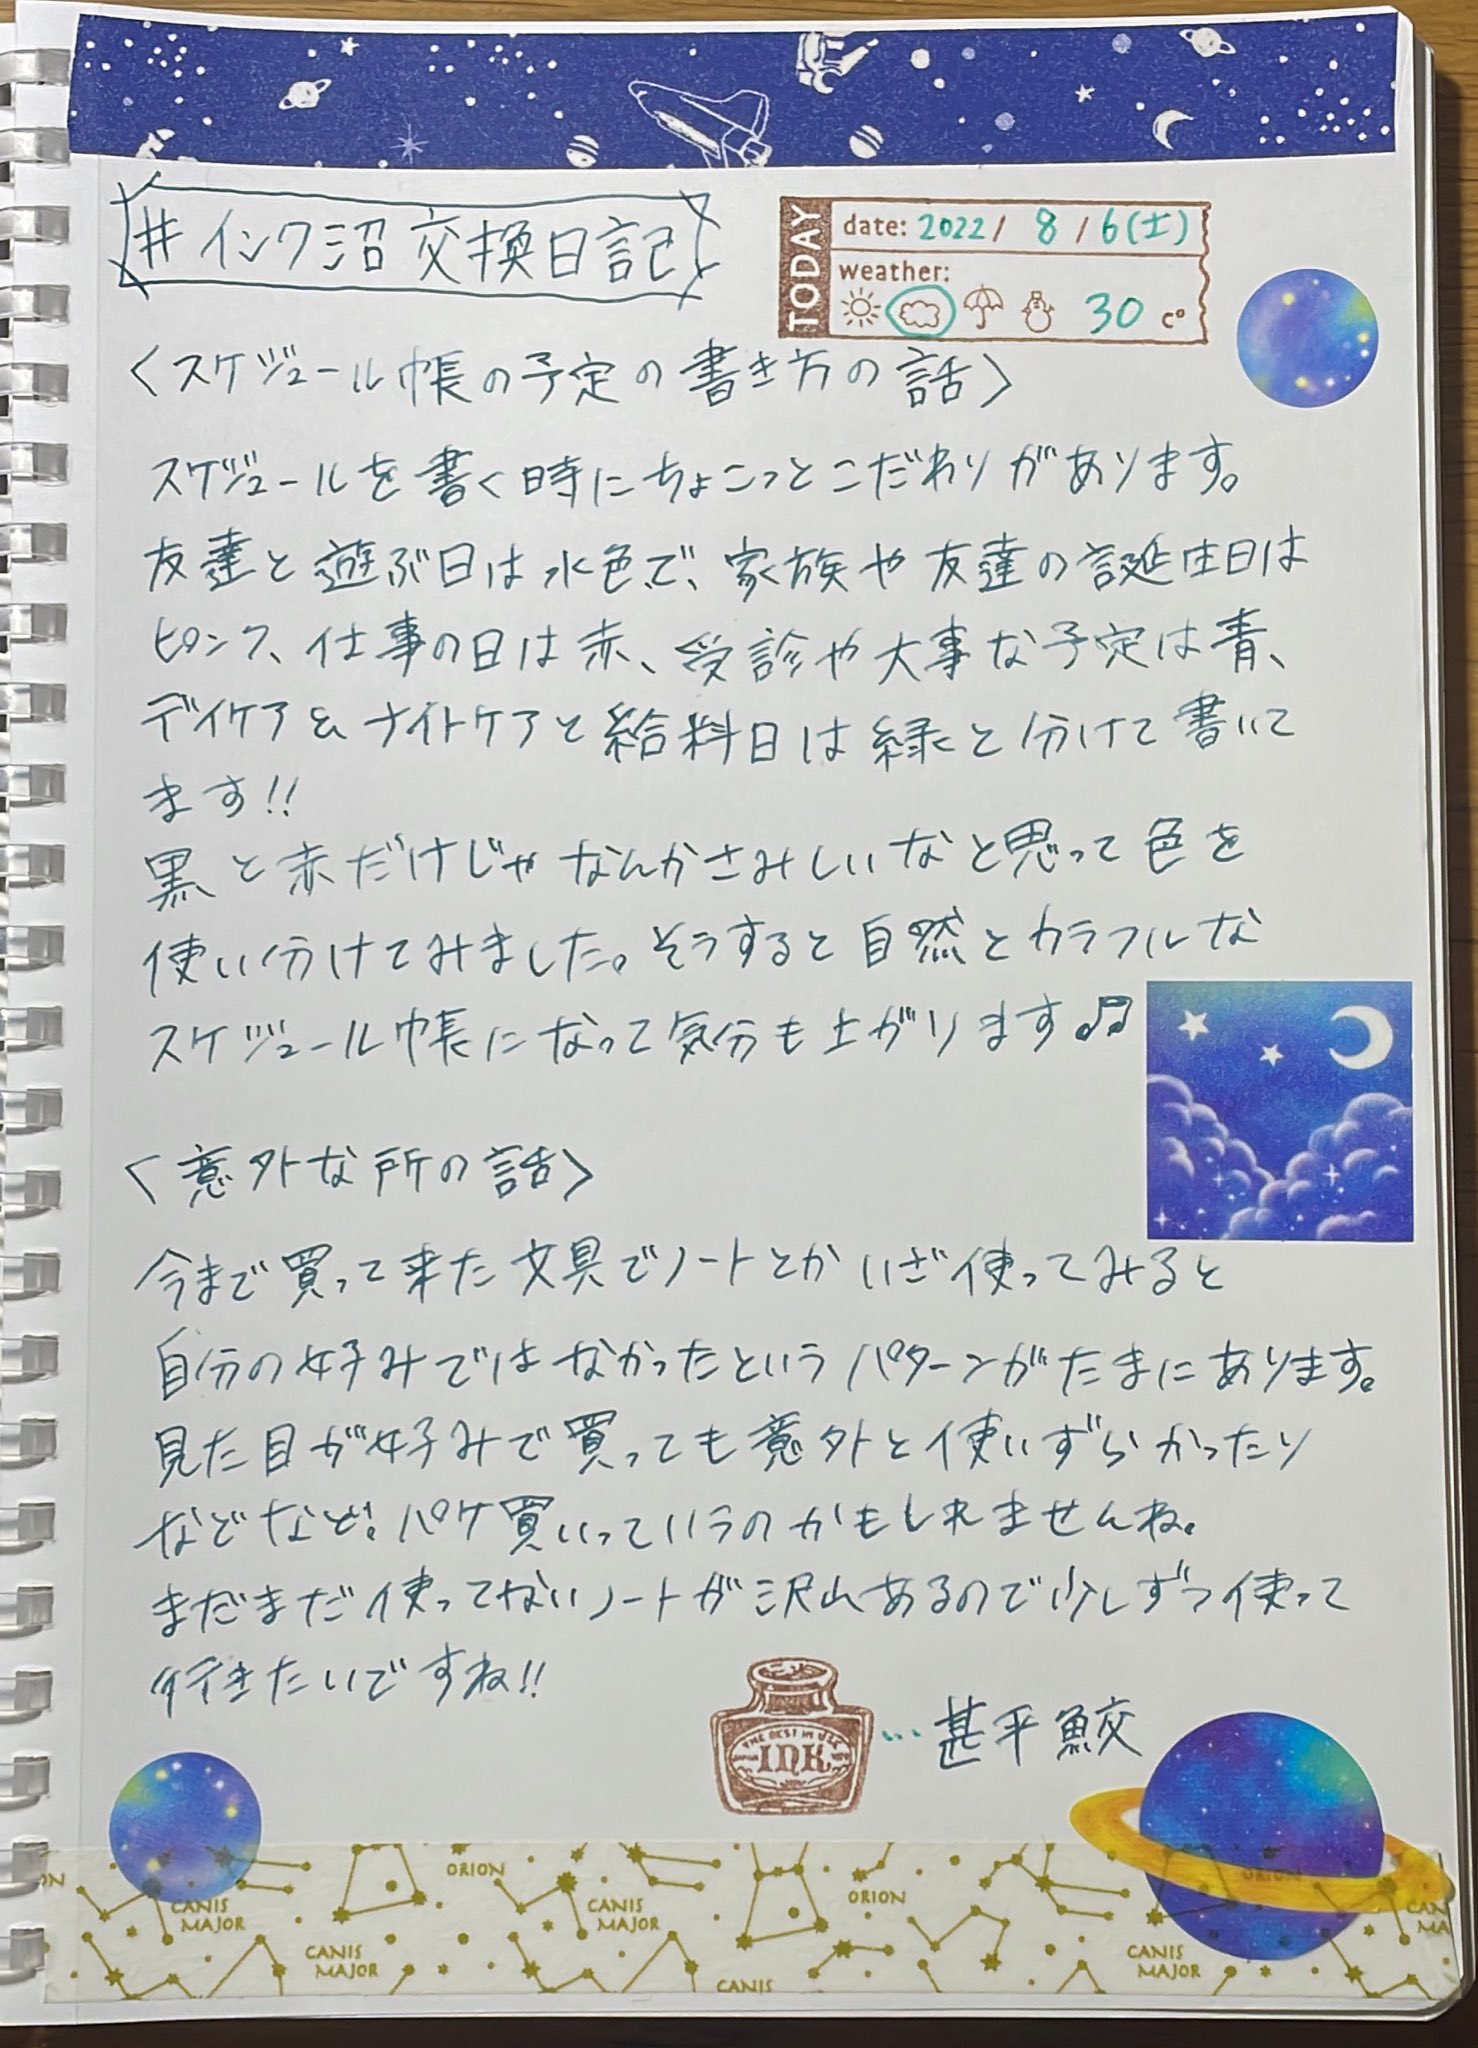 #インク沼交換日記
TODAY
date: 2022/ 8 /6(土)
weather:
30 c°
〈スケジュール帳の予定の書き方の話〉
スケジュールを書く時にちょこっとこだわりがあります。
友達と遊ぶ日は水色で、家族や友達の誕生日は
ピンク、仕事の日は赤、受診や大事な予定は青、
デイケア&ナイトケアと給料日は緑と分けて書いて
ます!!
黒と赤だけじゃなんかさみしいなと思って色を
使い分けてみました。そうすると自然とカラフルな
スケジュール帳になって気分も上がります♫
〈意外な所の話〉
今まで買って来た文具でノートとかいざ使ってみると
自分の好みではなかったというパターンがたまにあります。
見た目が好みで買っても意外と使いずらかったり
などなど。パケ買いっていうのかもしれませんね。
まだまだ使ってないノートが沢山あるので少しずつ使って
行きたいですね!!
THE BEST IN USE
INK
…甚平鮫
ORION
ORION
ORION
CANIS
MAJOR
CANIS
MAJOR
CANIS
MAJOR
CANIS
MAJOR
CANIS